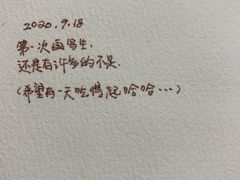 2020.9.18
第一次画写生.
还是有许多的不足.
(希望有一天吃得起哈哈…)